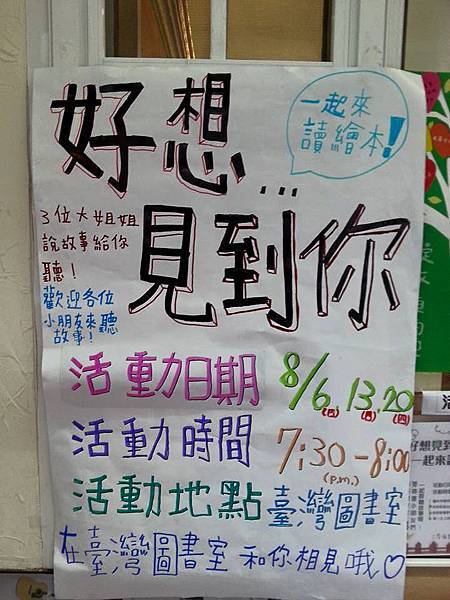 好想...
見到你
一起來
讀繪本!
3位大姐姐
說故事給你
聽!
歡迎各位
小朋友來聽
故事!
活動日期 8/6,13,20
(四) (四)
活動時間 7:30-8:00
(p.m.)
活動地點 臺灣圖書室
在臺灣圖書室 和你相見哦♡
好想見到
一起來讀